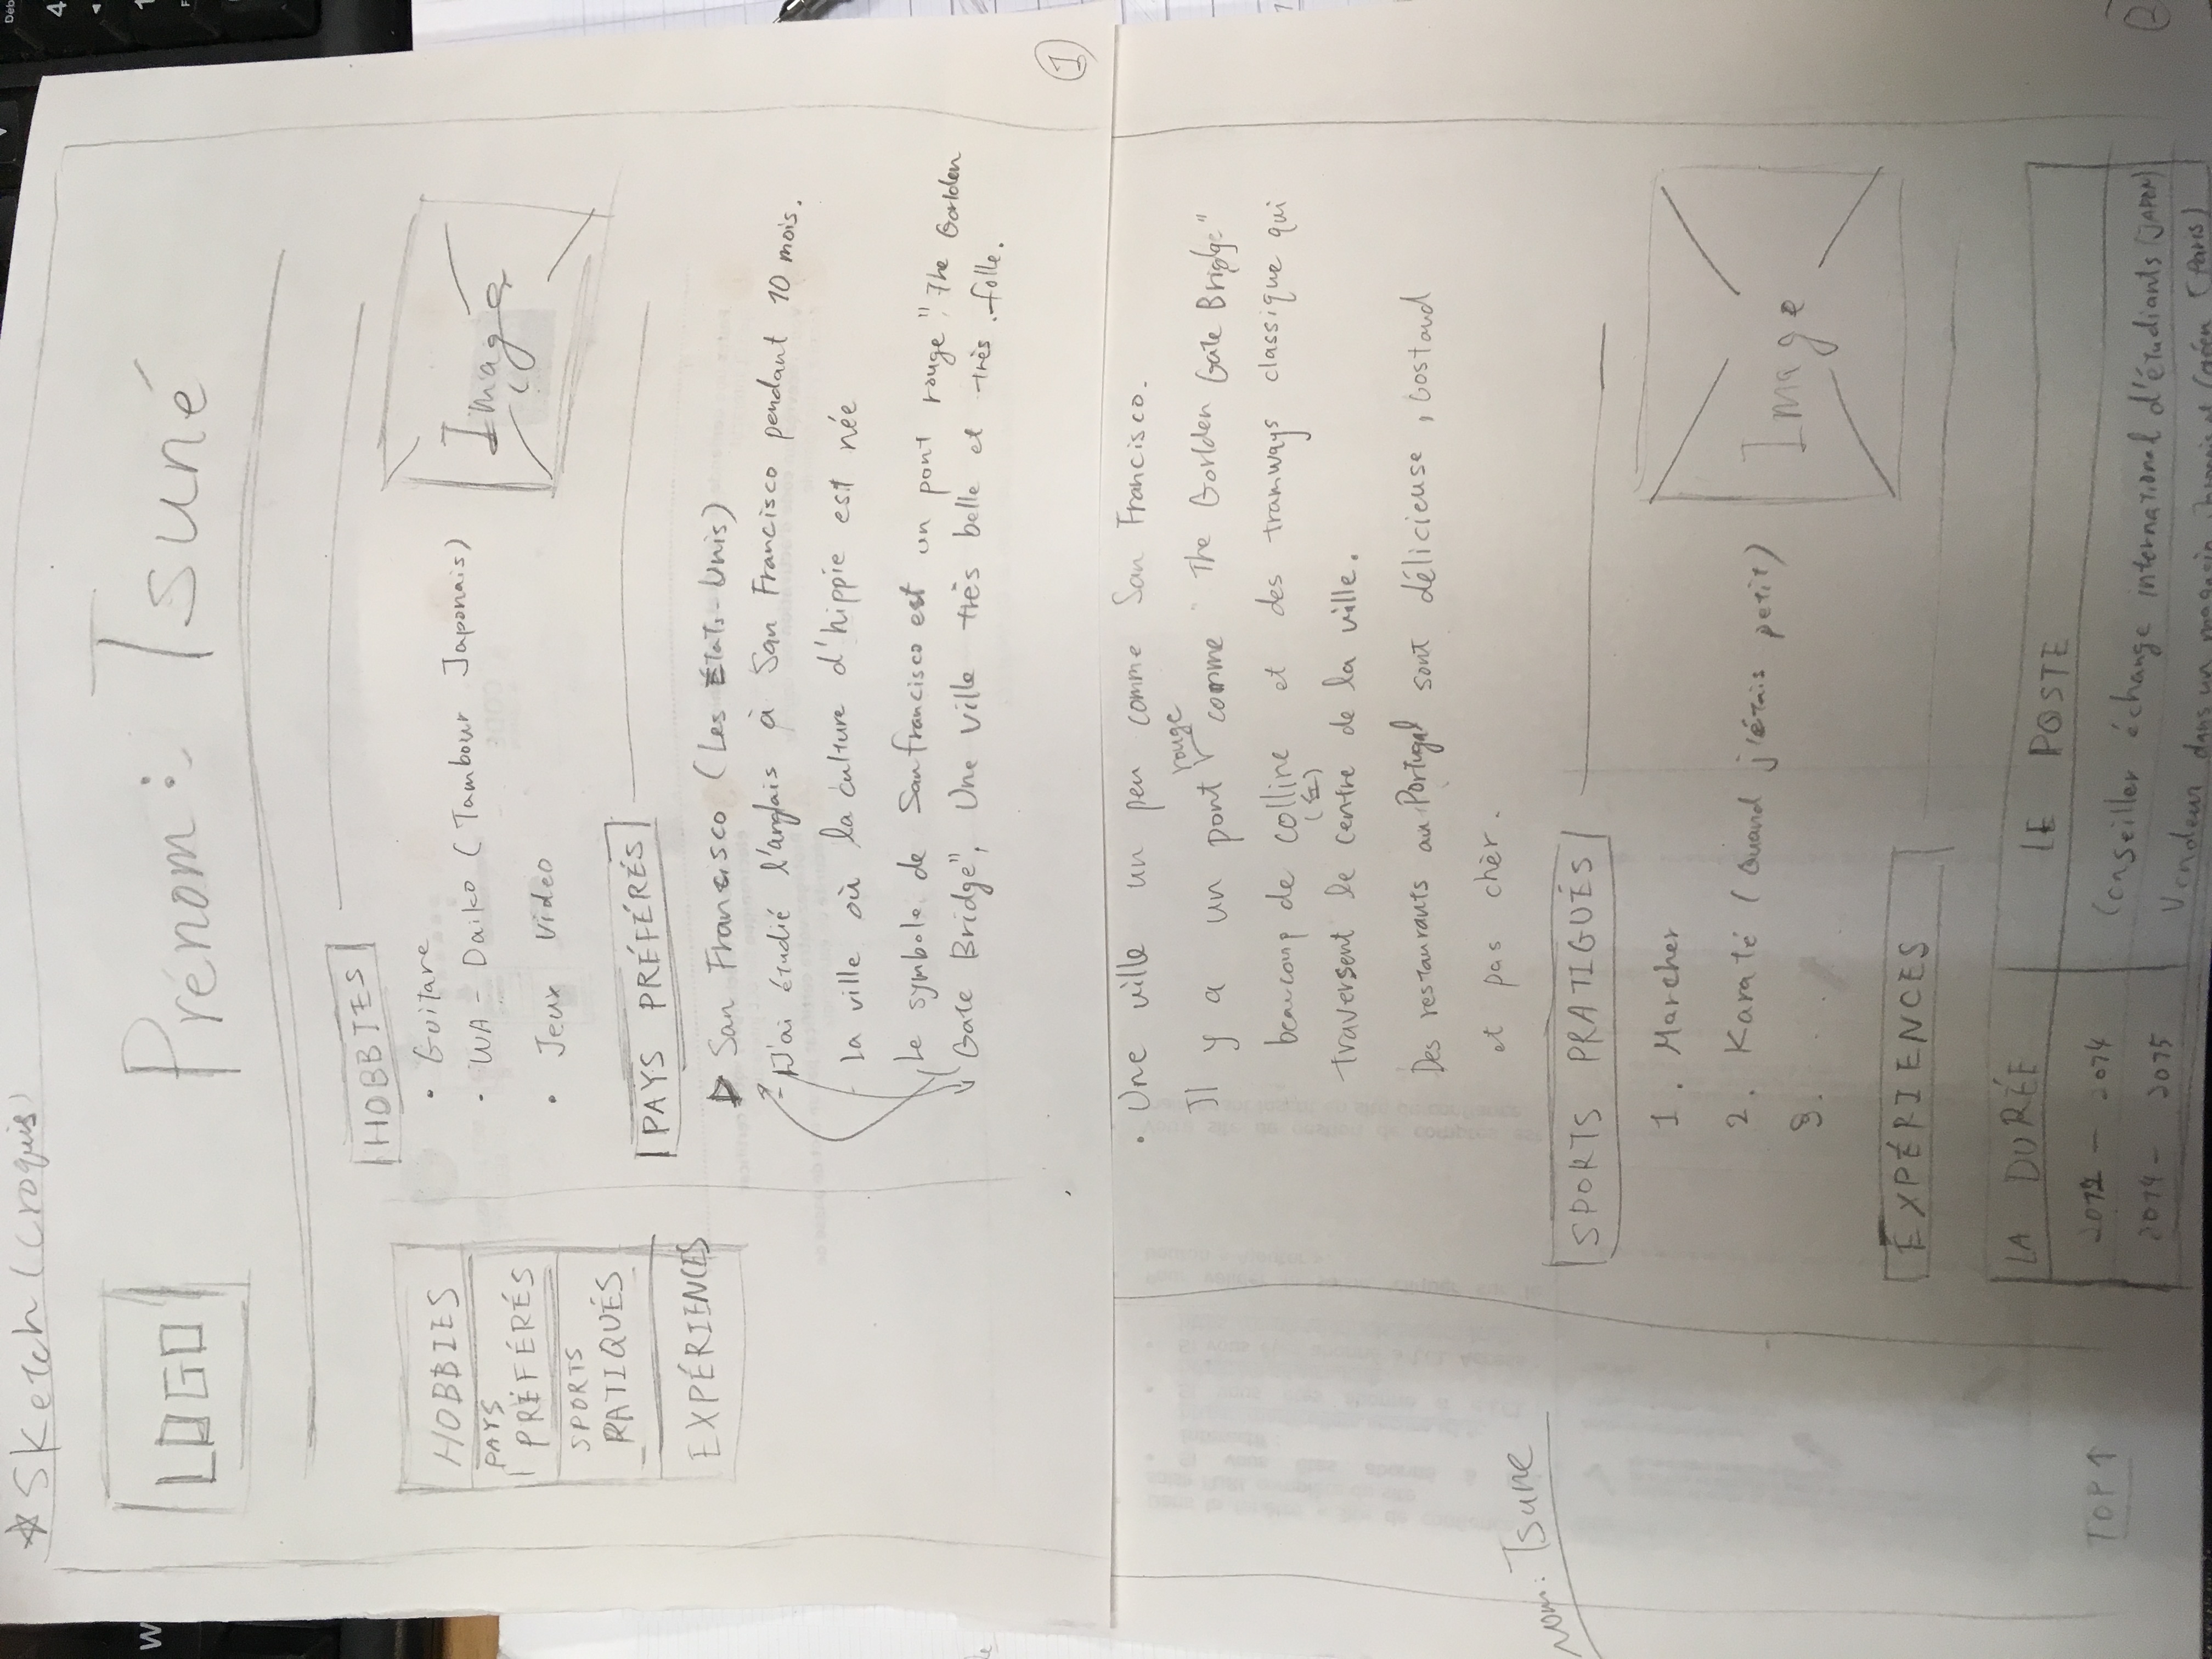 ☆ Sketch (croquis)
LOGO
Prénom : Tsuné
HOBBIES
PAYS
PRÉFÉRÉS
SPORTS
PRATIQUÉS
EXPÉRIENCES
HOBBIES
• Guitare
• WA - Daiko (Tambour Japonais)
• Jeux Video
Image
PAYS PRÉFÉRÉS
▷ San Francisco (Les États-Unis)
- J'ai étudié l'anglais à San Francisco pendant 10 mois.
- La ville où la culture d'hippie est née
Le symbole de San francisco est un pont rouge "The Gorlden
Gate Bridge", Une ville très belle et très folle.
1
• Une ville un peu comme San Francisco.
rouge
Il y a un pont comme "The Gorlden Gate Bridge"
beaucoup de colline et des tramways classique qui
traversent le centre de la ville.
Des restaurants au Portugal sont délicieuse, costaud
et pas chèr.
nom: Tsune
SPORTS PRATIGUÉS
1. Marcher
2. Karaté (Quand j'étais petit)
3. . .
Image
EXPÉRIENCES
LA DURÉE
LE POSTE
2012 - 2014
Conseiller échange international d'étudiants (JAPON)
2014 - 2015
Vendeur dans un magasin Japonais et Coréen (Paris)
TOP↑
2
W
4